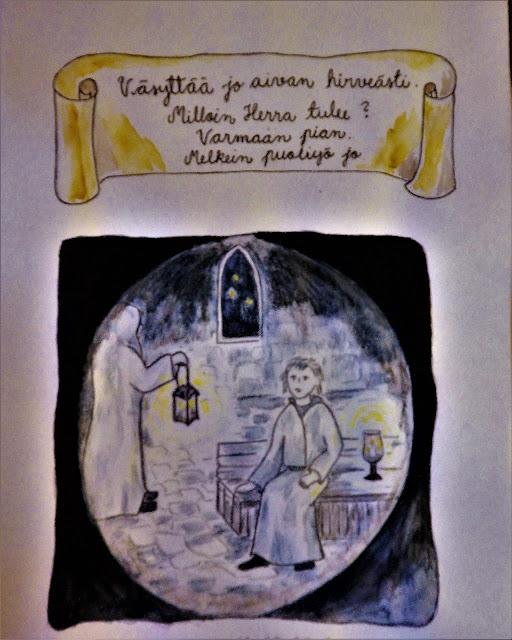 Väsyttää jo aivan hirveästi.
Milloin Herra tulee?
Varmaan pian.
Melkein puoliyö jo